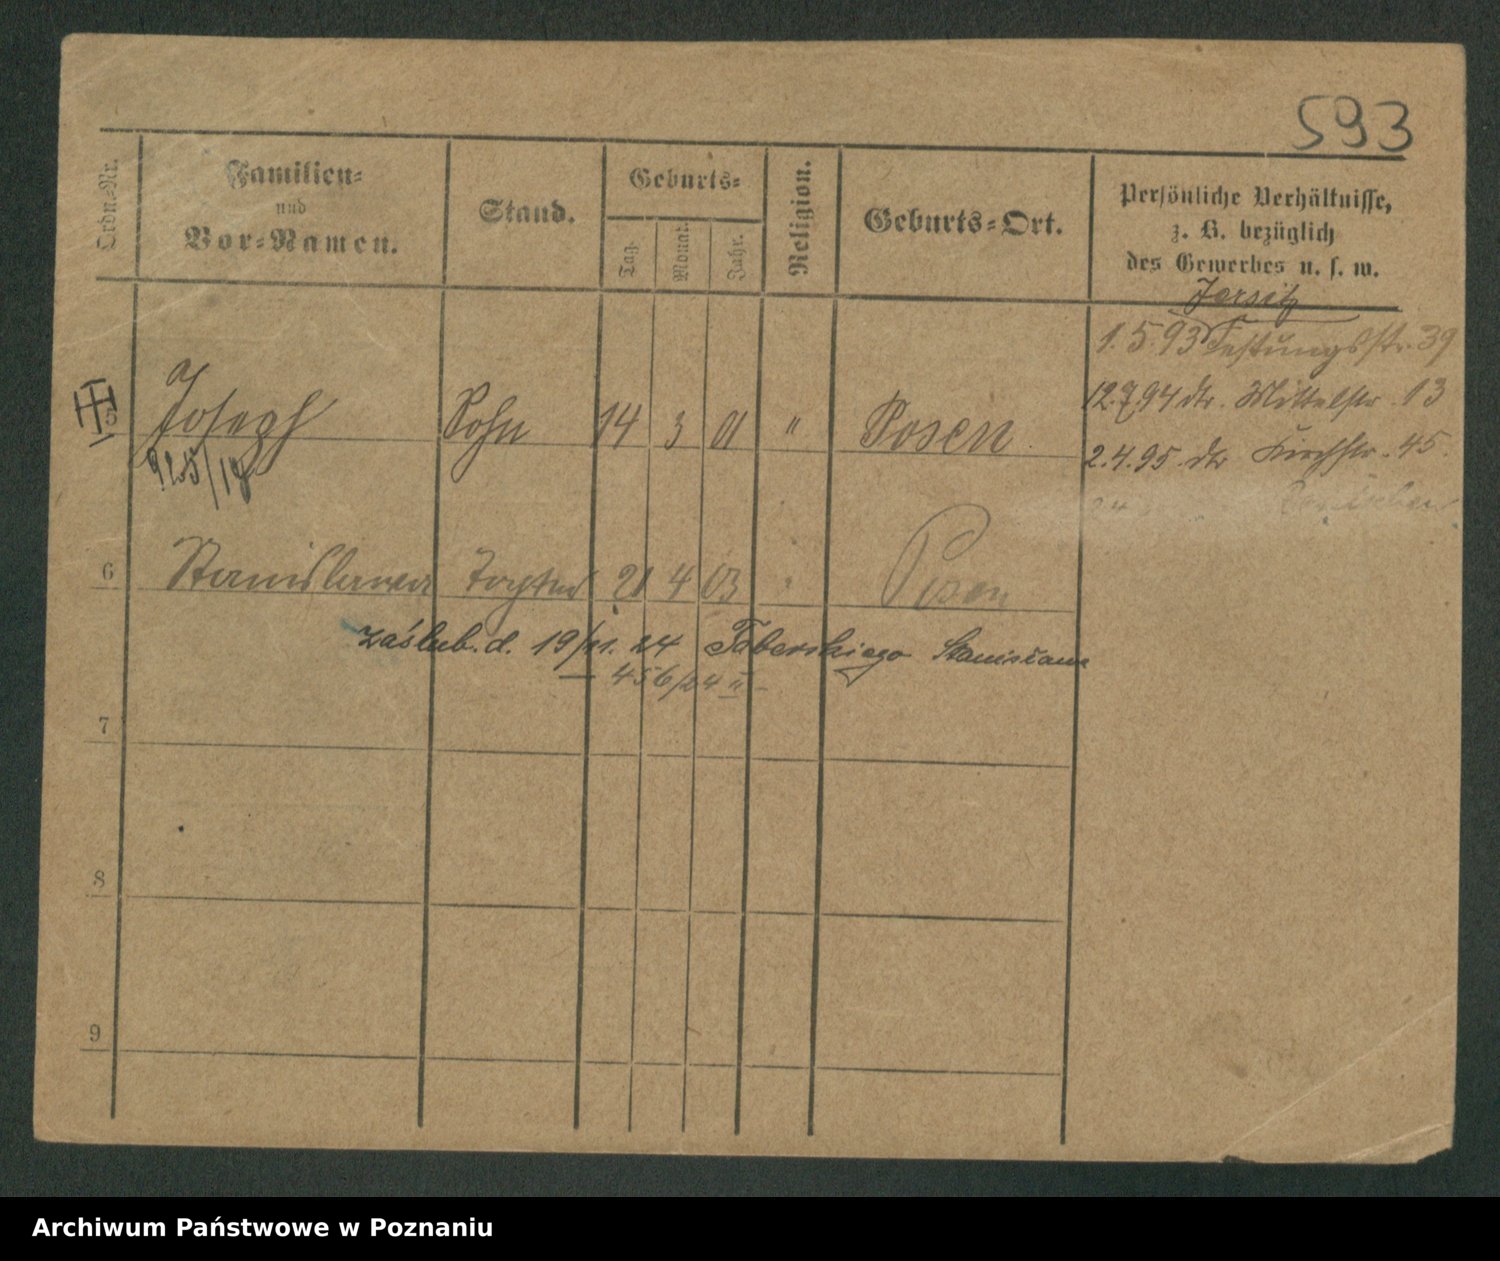 593
Ordn.=Nr.
Familien=
und
Vor=Namen.
Stand.
Geburts=
Tag.
Monat.
Jahr.
Religion.
Geburts=Ort.
Persönliche Verhältnisse,
z. B. bezüglich
des Gewerbes u. s. w.
Jersitz
1.5.93 Festungsstr. 39
12.7.94 dtr. Mittelstr. 13
2.4.95 dtr Kirchstr. 45.
5 Joseph Sohn 14 3 01 " Posen
925/18
6 Stanislawa Tochter 21 4 03 " Posen
zaślub. d. 19/11. 24 Taberskiego Stanisława
456/24 II
7
8
9
Archiwum Państwowe w Poznaniu